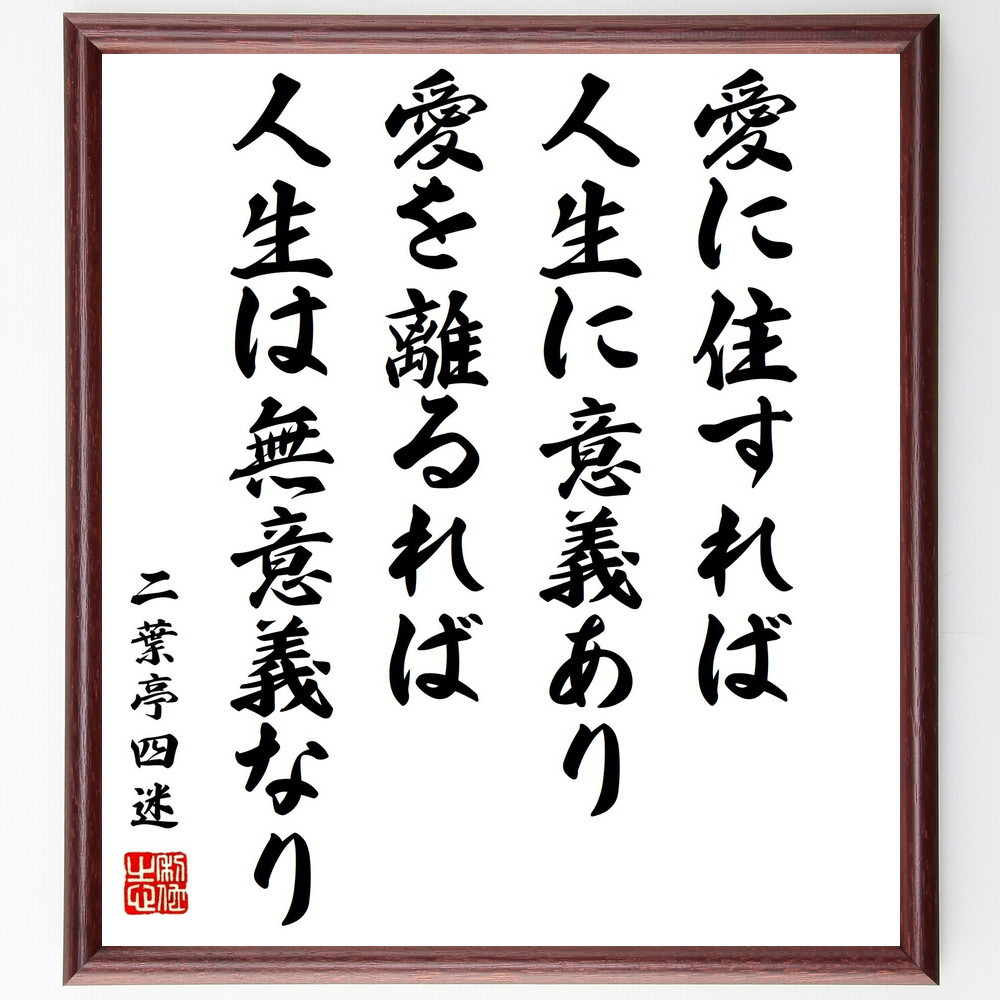 愛に住すれば
人生に意義あり
愛を離るれば
人生は無意義なり
二葉亭四迷